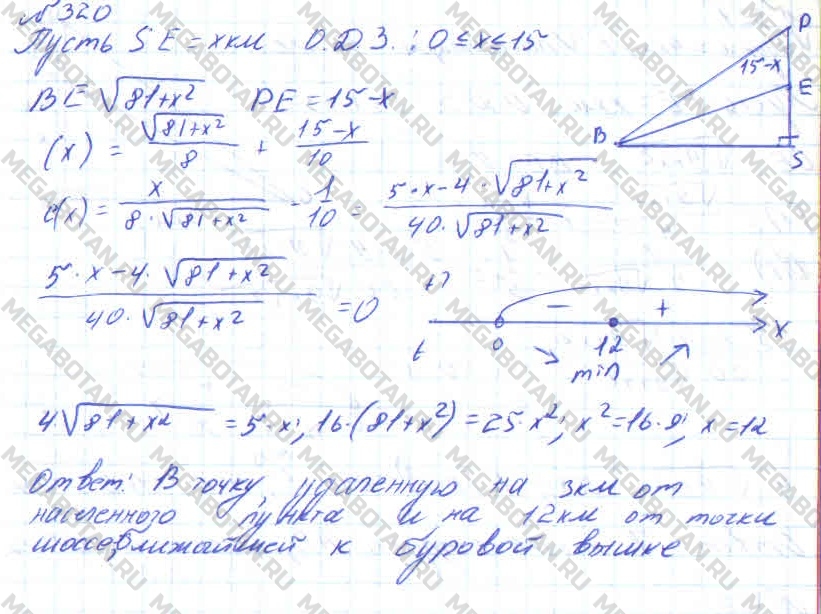 №320
Пусть SE = x км О.Д.З.: 0 ≤ x ≤ 15
BE √81+x² PE = 15-x
(x) = √81+x² / 8 + 15-x / 10
(x) = x / 8·√81+x² - 1/10 = 5·x-4·√81+x² / 40·√81+x²
5·x-4·√81+x² / 40·√81+x² = 0
P
15-x
E
B
S
- +
0 12 x
min
4·√81+x2 = 5·x; 16·(81+x²) = 25·x²; x² = 16·9; x = 12
Ответ: В точку, удаленную на 3км от
населенного пункта и на 12км от точки
шоссе, ближайшей к буровой вышке
MEGABOTAN.RU